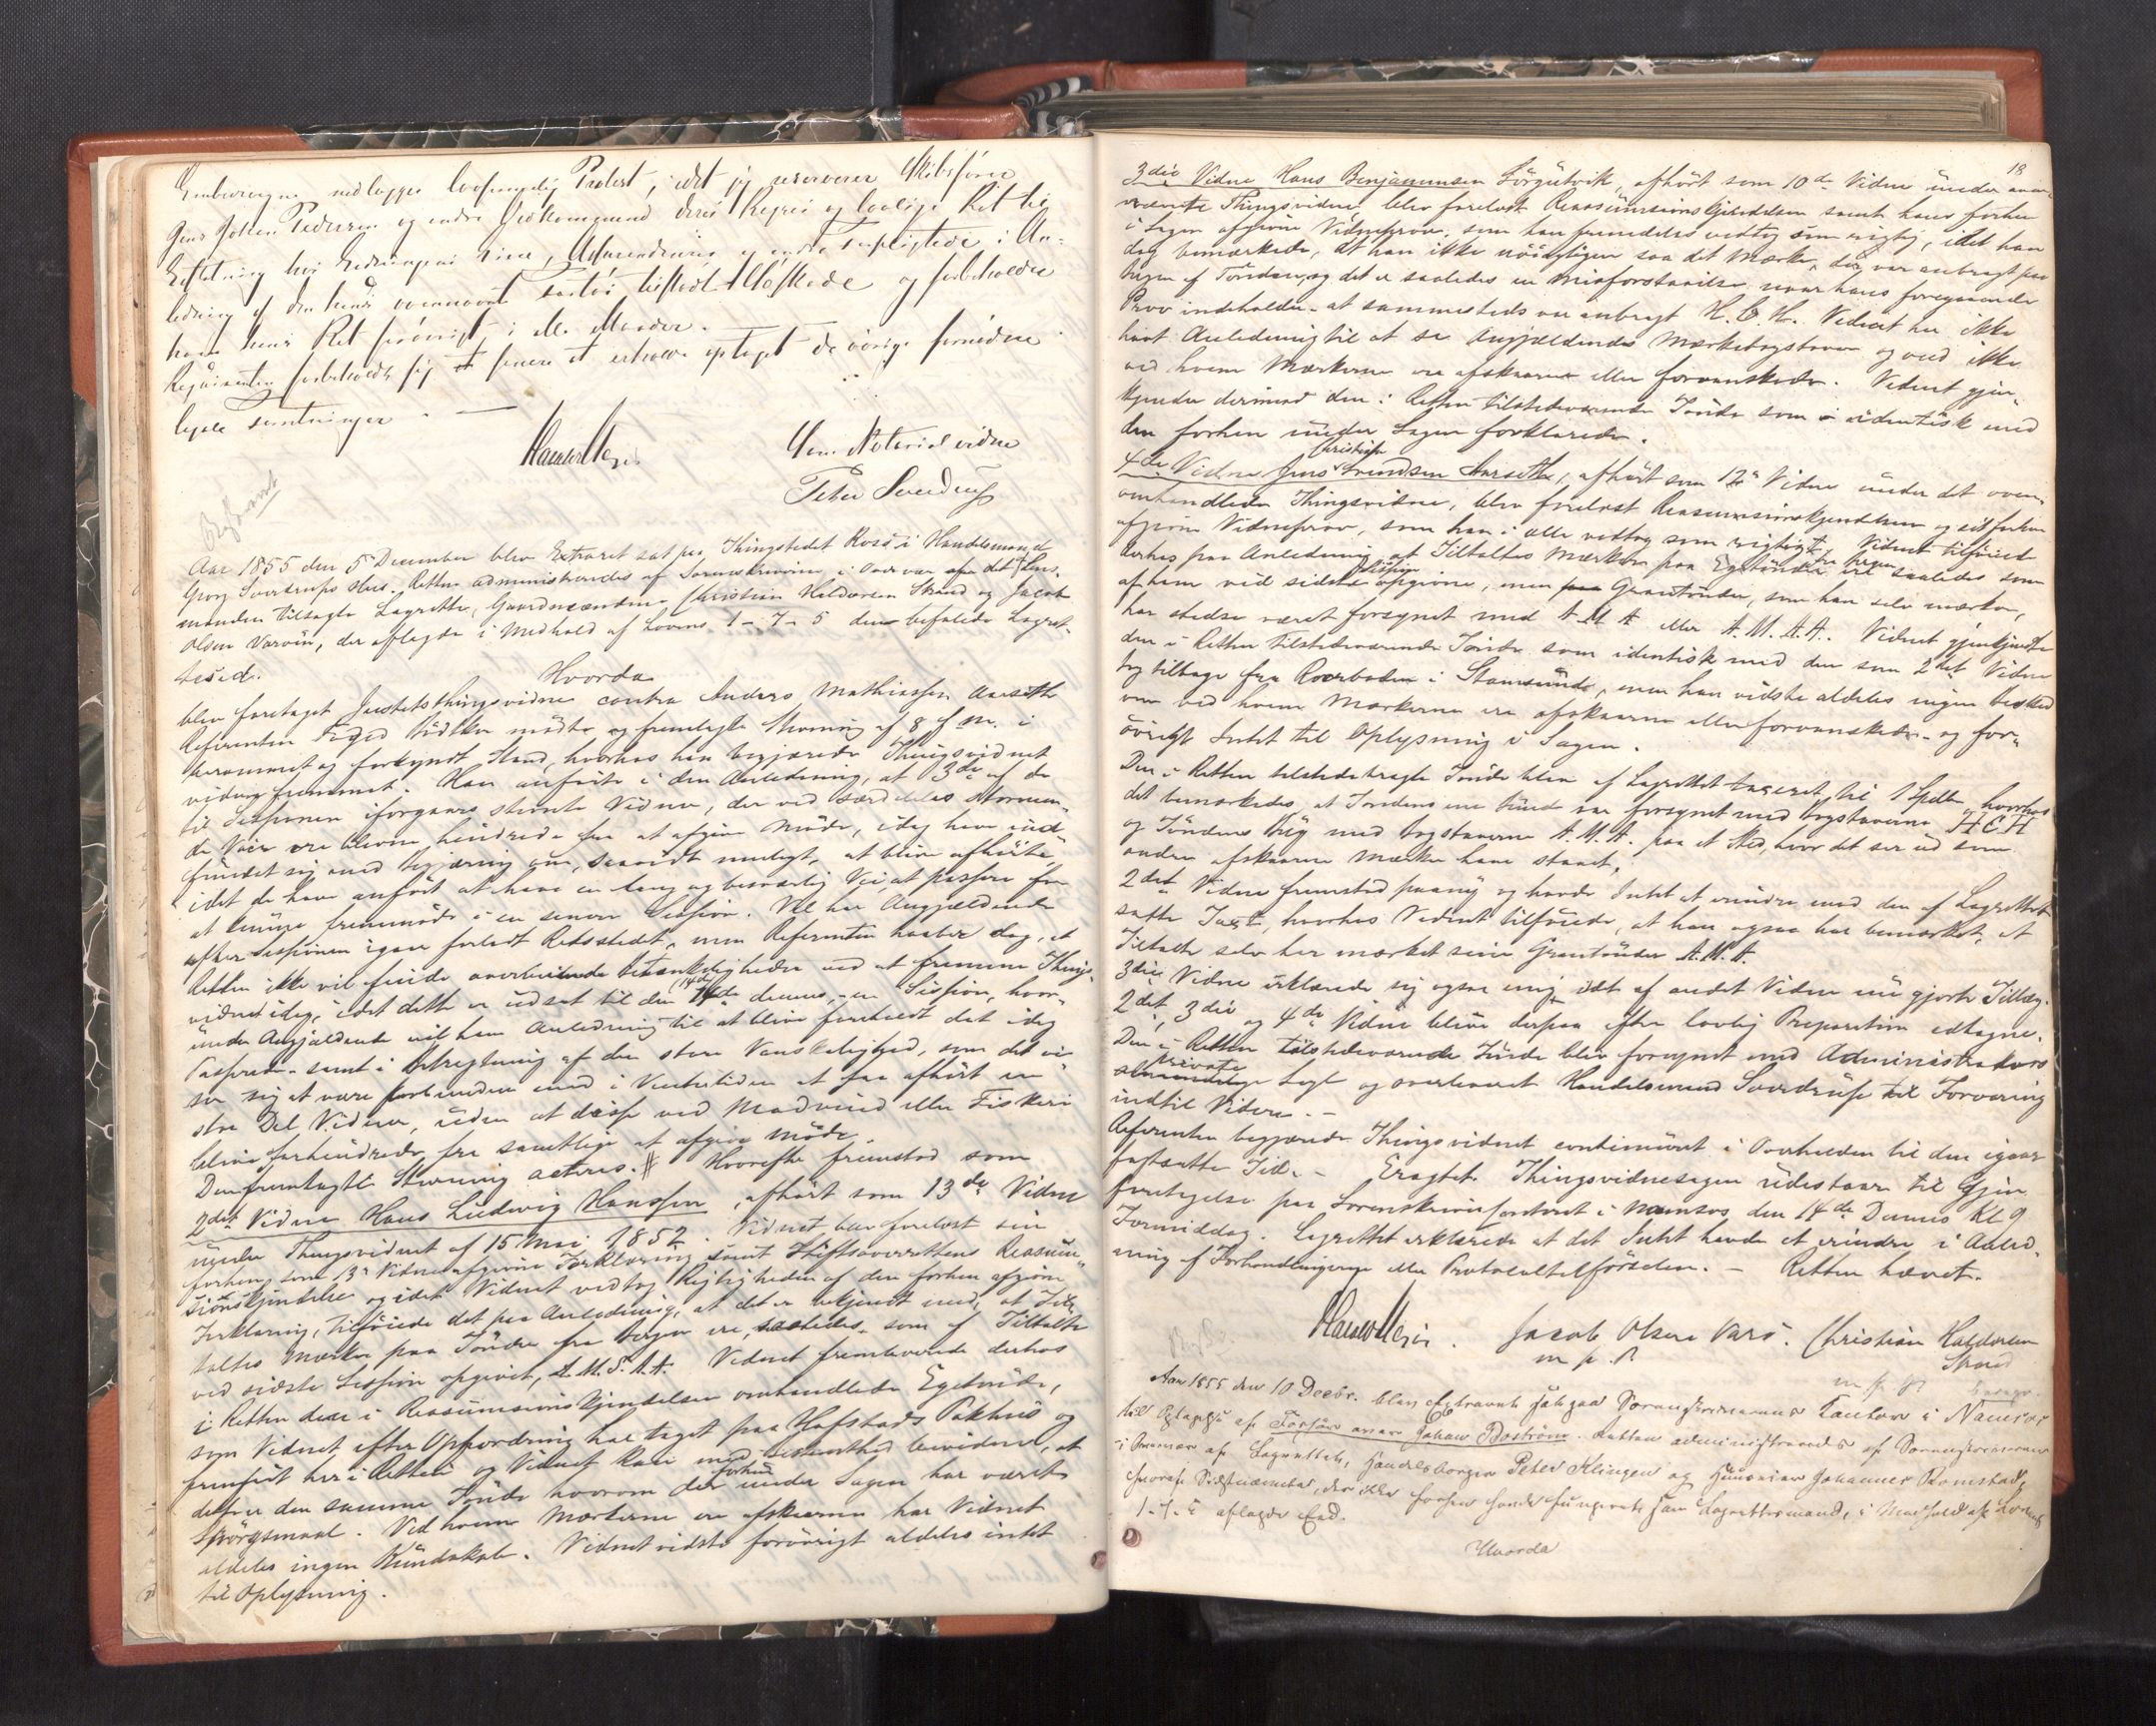 nedlægges Protest, idet jeg reserverer Skibsføreren
Jens Johan Pedersen og andre Vedkommende deres Regres og lovlige Ret til
Erstatning hos
ledning af den
hans Ret forøvrigt i Maader.
Requirenten forbeholdt sig senere at erholde optaget de øvrige fornødne
legale
Som Notarialvidne
Peter Sverdrup
Aar 1855 den 5 December blev Extraret sat paa Thingstedet Rosø i Handelsmand
Georg Sverdrups Huus. Retten administreredes af Sorenskriveren i Overvær af det af Lens-
manden tilsagte Lagrette, Gaardmændene Christian Haldorsen Strand og Jacob
Olsen Varøen, der aflagde i Medhold af Lovens 1-7-5 den befalede Lagret-
tesed.
Hvorda
blev foretaget Justitsthingsvidne contra Anders Mathiassen Aarseth
Referenten Foged mødte og fremlagde Stevning af 8 f. M. i
berammet og forkyndt Stand, hvorhos han begjærede Thingsvidnet
videre fremmet. Han anførte i den Anledning, at 3de af de
til Sessionen iforgaars stevnte Vidner, der ved særdeles stormen-
de Veir ere blevne hindrede fra at afgive Møde, idag have ind-
fundet sig med Begjæring om, saavidt muligt, at blive afhørte,
idet de have anført at have en lang og besværlig Vei at passere for
at kunne fremmøde i en senere Session. Vel har Angjældende
efter Sessionen igaar forladt Retsstedet, men Referenten haaber dog, at
Retten ikke vil finde overveiende Betænkeligheder ved at fremme Things-
vidnet idag, idet dette er udsat til den 14de dennes, - en Session, hvor-
under Angjældende vil have Anledning til at blive foreholdt det idag
Passerede - samt i Betragtning af den store Vanskelighed, som det vi-
ser sig at være forbunden med i Vintertiden at faae afhørt en
stor Del Vidner, uden at disse ved Modvind eller Fiskeri
blive forhindrede fra samtlige at afgive Møde.
Den fremlagte Stevning acteres. # Hvorefter fremstod som
2det Vidne Hans Ludvig Hanssen, afhørt som 13de Vidne
under Thingsvidnet af 15 Mai 1852. Vidnet blev forelæst sin
forhen som 13de Vidne afgivne Forklaring samt Stiftsoverrettens Reasum-
sionskjendelse og idet Vidnet vedtog Rigtigheden af den forhen afgivne
Forklaring, tilføiede det paa Anledning, at det er bekjendt med, at Til-
taltes Mærker paa Tønder fra Bergen ere saaledes, som af Tiltalte
ved sidste Session opgivet, A.M.S.A.A. Vidnet fremleverede derhos
i Retten den i Reasumsionskjendelsen omhandlede Egetønde,
som Vidnet efter Opfordring har taget paa Hofstads Pakhuus og
fremført her i Retten og Vidnet kan med Bestemthed bevidne, at
det er den samme Tønde hvorom der forhen under Sagen har været
Spørgsmaal. Ved hvem Mærkerne ere afskaarne har Vidnet
aldeles ingen Kundskab. Vidnet vidste forøvrigt aldeles intet
til Oplysning.
18
3die Vidne Hans Benjaminsen Sørgutvik, afhørt som 10de Vidne under oven-
nævnte Thingsvidne blev forelæst Reassumsionskjendelsen samt hans forhen
i Sagen afgivne Vidneprov, som han fremdeles vedtog som rigtig, idet han
dog bemærkede, at han ikke nøiagtigen saa det Mærke, der var anbragt paa
Bugen af Tønden, og det er saaledes en Misforstaaelse, naar hans foregaaende
Prov indeholder - at sammesteds var anbragt H.C.H. Vidnet har ikke
havt Anledning til at se Angjældendes Mærkebogstaver og ved ikke
ved hvem Mærkerne ere afskaarne eller forvanskede. Vidnet gjen-
kjender derimod den i Retten tilstedeværende Tønde som identisk med
den forhen under Sagen forklarede.
4de Vidne Jens Christian Svendsen Aarseth, afhørt som 12te Vidne under det oven-
omhandlede Thingsvidne, blev forelæst Reasumsionskjendelsen og sit forhen
afgivne Vidneprov, som han i alle vedtog som rigtigt. Vidnet tilføied
derhos paa Anledning at Tiltaltes Mærker paa Egetønder fra Bergen ere saaledes som
af ham ved sidste Session opgivne, men Grantønder, som han selv mærker,
har stedse været forsynet med A.M.A eller A.M.A.A. Vidnet gjenkjendte
den i Retten tilstedeværende Tønde som identisk med den som 2det Vidne
tog tilbage fra Roerboden i Stamsund, men han vidste aldeles ingen Besked
om ved hvem Mærkerne ere afskaarne eller forvanskede - og for-
øvrigt Intet til Oplysning i Sagen.
Den i Retten tilstedebragte Tønde blev af Lagrettet taxeret til 1 Spdlr, hvorhos
det bemærkedes, at Tøndens ene Bund var forsynet med Bogstaverne H C H
og Tøndens Bug med Bogstaverne A.M.A. paa et Sted, hvor det ser ud som
andre afskaarne Mærker have staaet.
2det Vidne fremstod paany og havde Intet at erindre mod den af Lagrettet
satte Taxt, hvorhos Vidnet tilføiede, at han ogsaa har bemærket, at
Tiltalte selv har mærket sine Grantønder A.M.A.
3die Vidne erklærede sig ogsaa enig i det af andet Vidne nu gjorte Tillæg.
2det, 3die og 4de Vidne bleve derpaa efter lovlig Preparation edtagne.
Den i Retten tilstedeværende Tønde blev forsynet med Administrators
private Segl og overleveret Handelsmand Sverdrup til Forvaring
indtil Videre. -
Referenten begjærede Thingsvidnet continueret i Overheden til den igaar
fastsatte Tid. - Eragtet. Thingsvidnesagen udestaar til Gjen-
foretagelse paa Sorenskrivercontoret i Namsos den 14de Dennes Kl 9
Formiddag. Lagrettet erklærede at det Intet havde at erindre i Anled-
ning af Forhandlingerne eller Protocoltilførselen. - Retten hævet.
Jacob Olsen Varø. Christian Haldorsen
m p. P Strand
m p P
Aar 1855 den 10 Decbr. blev Extraret sat paa Sorenskriverens Contor i Namsos
til Optagelse af Forhør over Johan Boström. Retten administreredes af Sorenskriveren
i Overvær af Lagrettet, Handelsborger Peter Klingen og Huseier Johannes Romstad,
hvoraf Sidstnævnte, der ikke forhen havde fungeret som Lagrettesmand, i Medhold af Lovens
1-7-5 aflagde Ed.
Hvorda